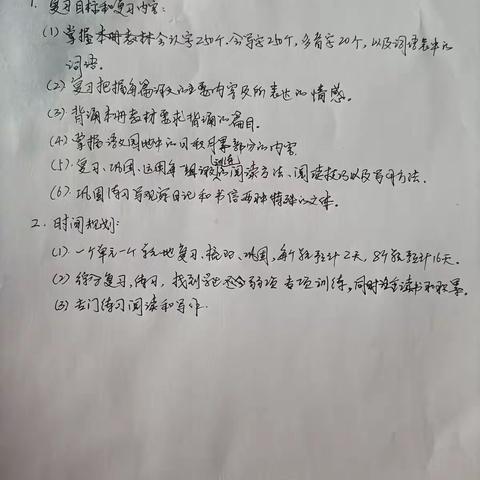 1. 复习目标和复习内容:
(1) 掌握本册教材会认字250个.会写字250个,多音字20个,以及词语表中的
词语。
(2) 复习把握每篇课文的主要内容及所表达的情感。
(3) 背诵本册教材要求背诵的篇目。
(4) 掌握语文园地中的日积月累部分的内容.
(5) 复习、巩固、运用每一组课文的阅读方法、阅读技巧以及写作方法.
(6) 巩固练习写观察日记和书信两种特殊的文体.
2. 时间规划:
(1) 一个单元一个单元地复习、练习、巩固,每个单元计2天,8个单元计16天.
(2) 综合复习,练习,找到 弱项 专项训练,同时注重读书和积累。
(3) 专门练习阅读和写作.